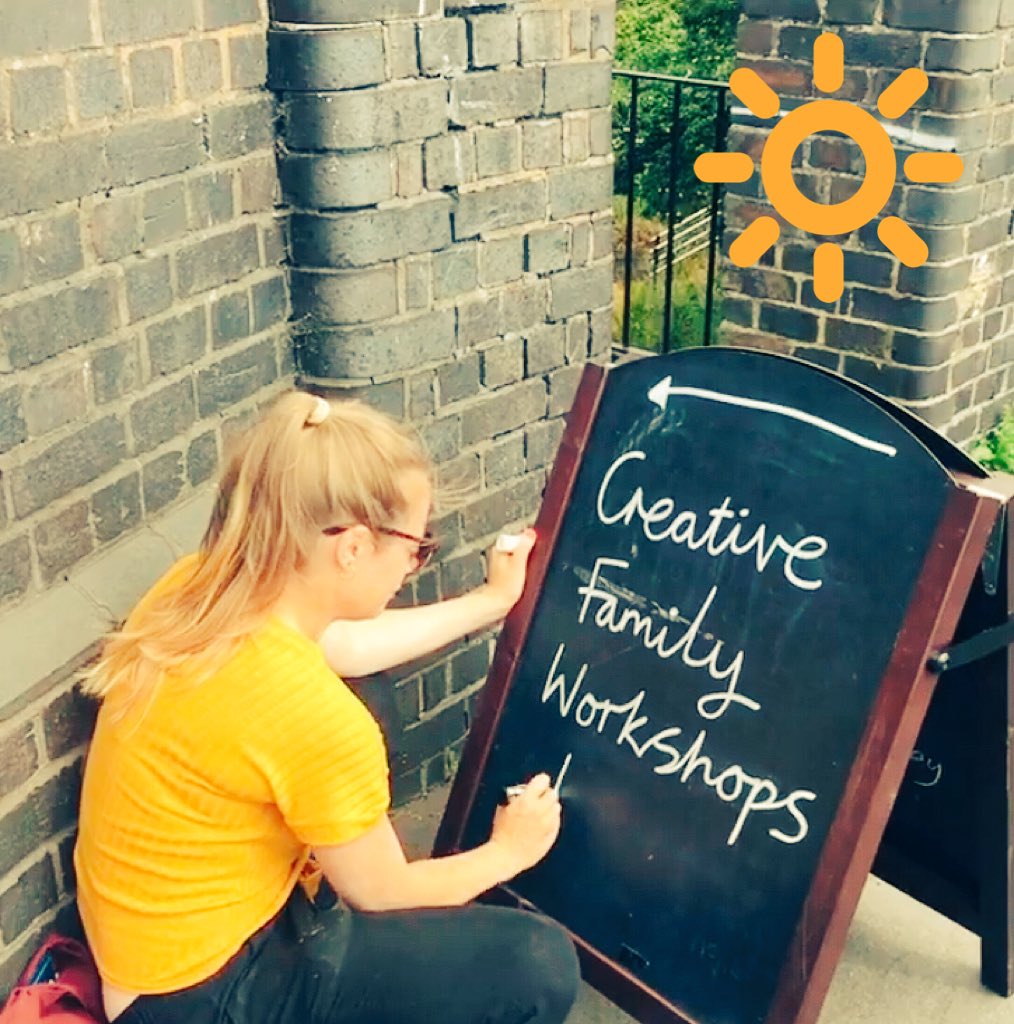 Creative
Family
Workshops